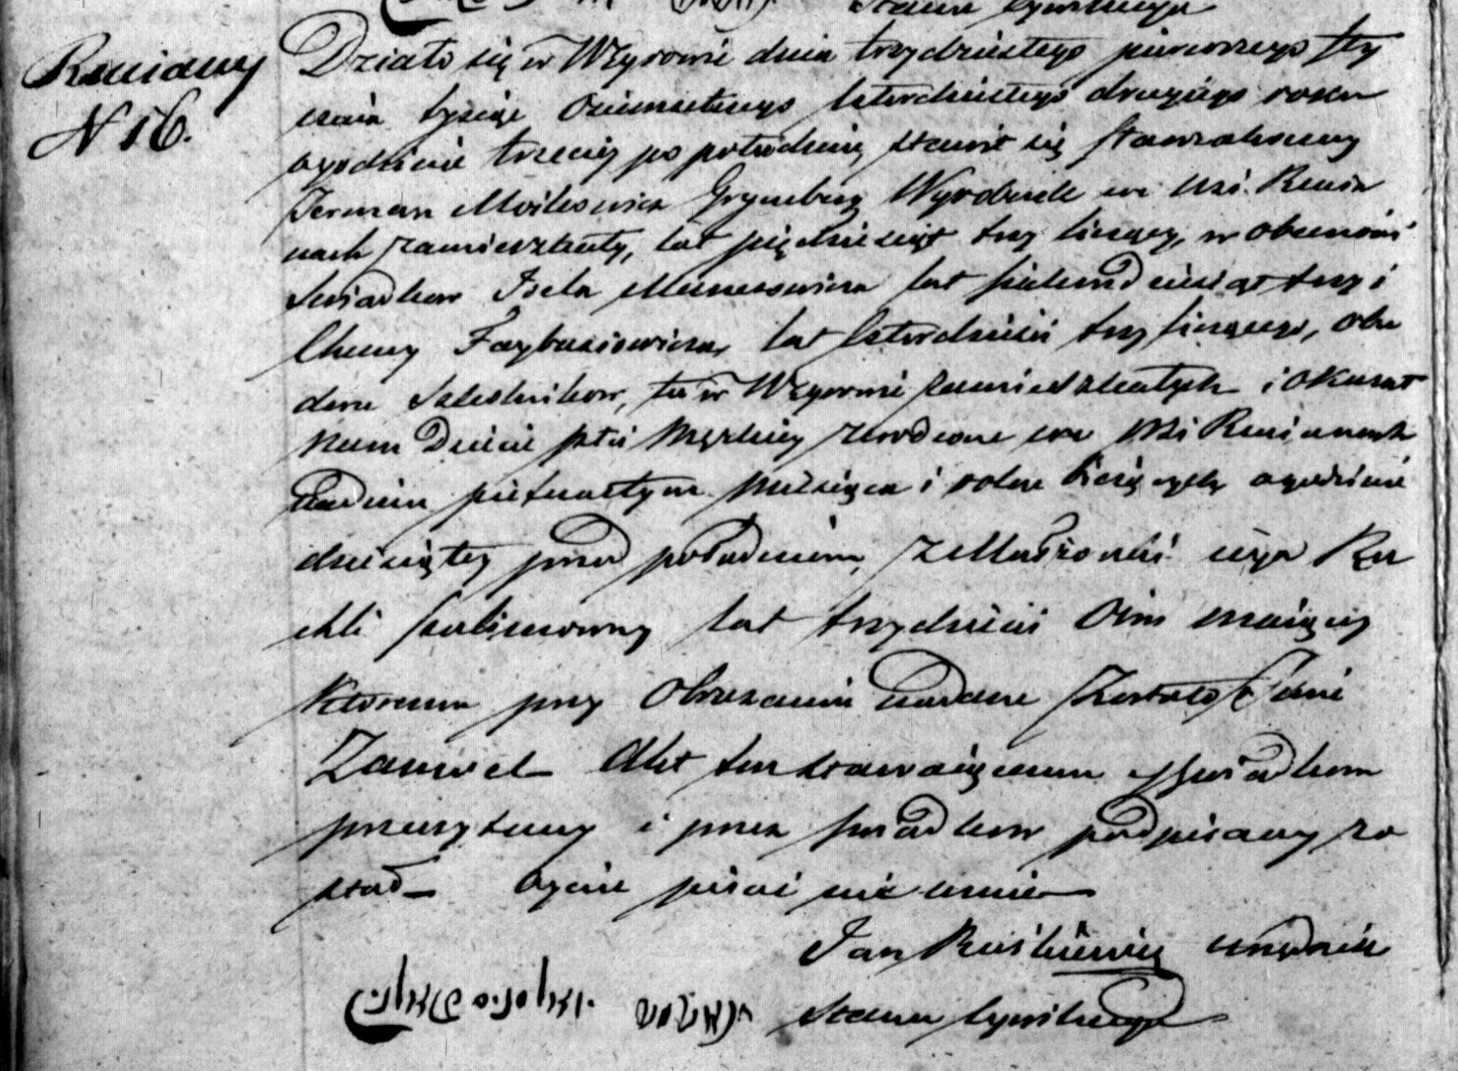 Stanu Cywilnego
Ruciany
N 16.
Działo się w Węgrowie dnia trzydziestego pierwszego Sty
cznia tysiąc Osiemsetnego czterdziestego drugiego roku
ogodzinie trzeciej po południu, stawił się Starozakonny
Herman Moskowicz Grynberg Wyrobnik we Wsi
nach zamieszkały, lat pięćdziesiąt trzy liczący, w obecności
Swiadków Icka lat siedemdziesiąt trzy i
lat czterdzieści trzy liczącego, obu
dwu Szkolników, tu w Węgrowie zamieszkałych i okazał
nam Dziecię płci Męzkiey urodzone we Wsi
na dniu piętnastym miesiąca i roku bieżących ogodzinie
dziesiątey przed południem, z Małżonki iego Ru
chli lat trzydzieści Ośm maiącey
któremu przy Obrzezaniu nadane Zostało Imie
Zanwel Akt ten stawaiącemu y Swiadkom
przeczytany i przez Swiadków podpisany zo
stał Oyciec pisać nie umie
Jan Urzędnik
Stanu Cywilnego